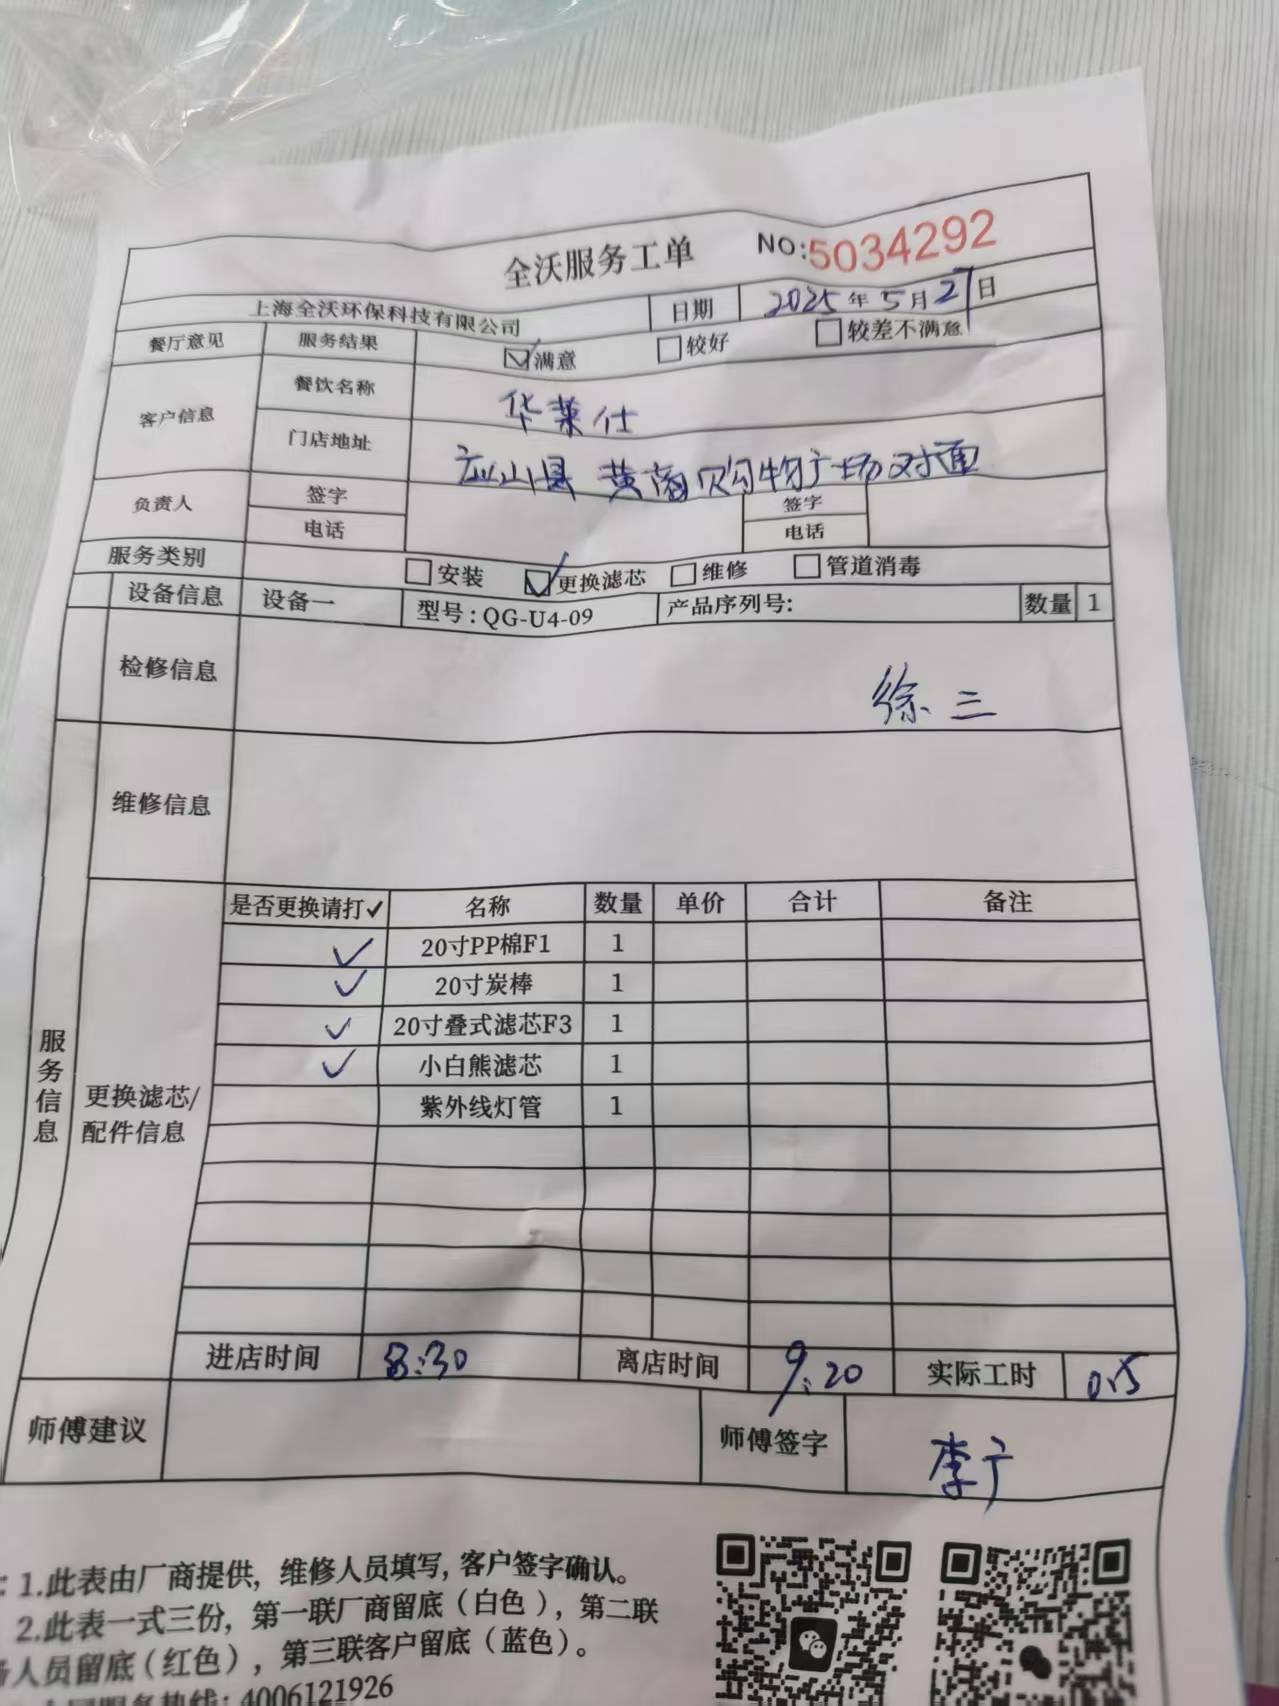 全沃服务工单 NO:5034292
上海全沃环保科技有限公司 日期 2025年5月27日
餐厅意见 服务结果 满意 较好 较差不满意
客户信息 餐饮名称 华莱仕
门店地址 应山县 黄商购物广场对面
负责人 签字 签字
电话 电话
服务类别 安装 更换滤芯 维修 管道消毒
设备信息 设备一 型号:QG-U4-09 产品序列号: 数量 1
检修信息 徐三
维修信息
服务信息
更换滤芯/
配件信息
是否更换请打✓ 名称 数量 单价 合计 备注
✓ 20寸PP棉F1 1
✓ 20寸炭棒 1
✓ 20寸叠式滤芯F3 1
✓ 小白熊滤芯 1
紫外线灯管 1
进店时间 8:30 离店时间 9:20 实际工时 0.5
师傅建议 师傅签字 李广
1.此表由厂商提供,维修人员填写,客户签字确认。
2.此表一式三份,第一联厂商留底(白色),第二联
人员留底(红色),第三联客户留底(蓝色)。
服务热线:4006121926